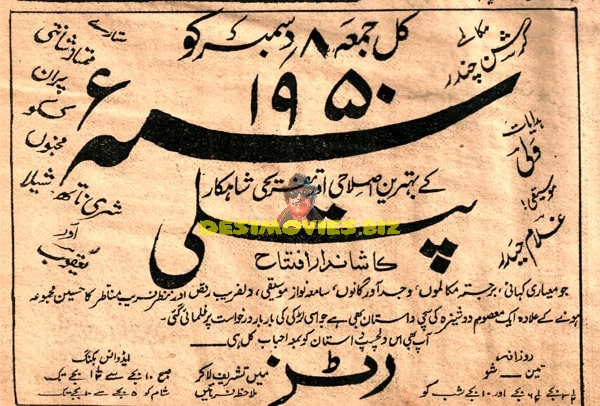 کل جمعہ ۸ دسمبر کو
سنہ ۱۹۵۰ء
کے بہترین اصلاحی اور تفریحی شاہکار
پتلی
کا شاندار افتتاح
مکالمے
کرشن چندر
ہدایات
ولی
موسیقی:
غلام حیدر
ستارے
ممتاز شانتی
پران
ککو
مجنوں
شری ناتھ شیلا
اور
یعقوب
DESIMOVIES.BIZ
جو معیاری کہانی، برجستہ مکالموں، وجد آور گانوں، سامعہ نواز موسیقی، دلفریب رقص اور نظر فریب مناظر کا حسین مجموعہ
ہونے کے علاوہ ایک معصوم دوشیزہ کی سچی داستان بھی ہے جو اسی لڑکی کی بار بار درخواست پر فلمائی گئی۔
آپ بھی اس دلچسپ داستان کو بمعہ احباب کل ہی
رٹز
میں تشریف لا کر
ملاحظہ فرمائیں
روزانہ
تین شو
اور ۱۰ بجے شب کو
ایڈوانس بکنگ
صبح ۱۰ بجے سے ۱۲ بجے تک
شام کو ۵ بجے سے ۱۰ بجے تک